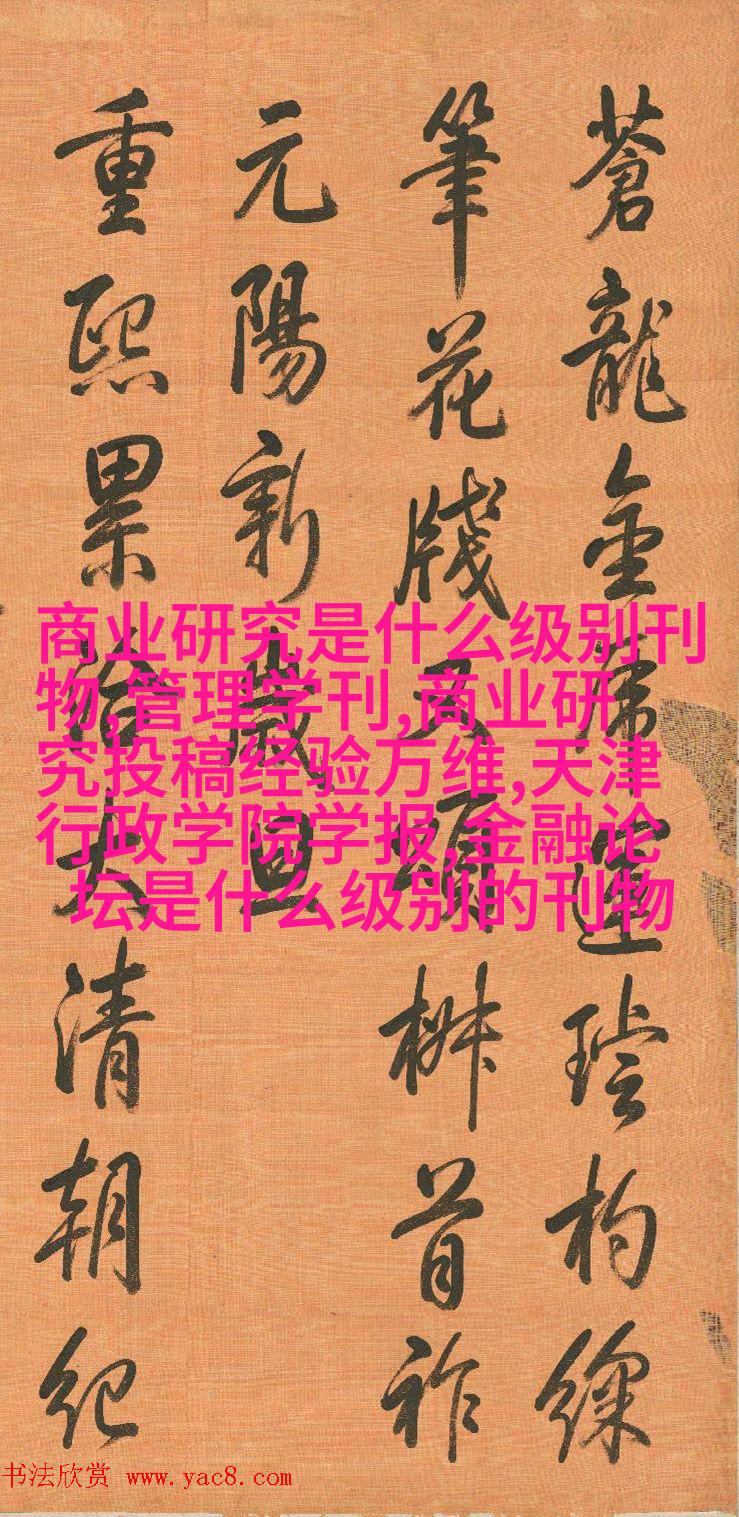 蒼龍金運杓
筆花牋頌椒首祚
元陽新歲旦
重熙累洽大清朝紀
商业研究是什么级别刊
物,管理学刊,商业研
究投稿经验万维,天津
行政学院学报,金融论
坛是什么级别的刊物
书法欣赏 www.yac8.com